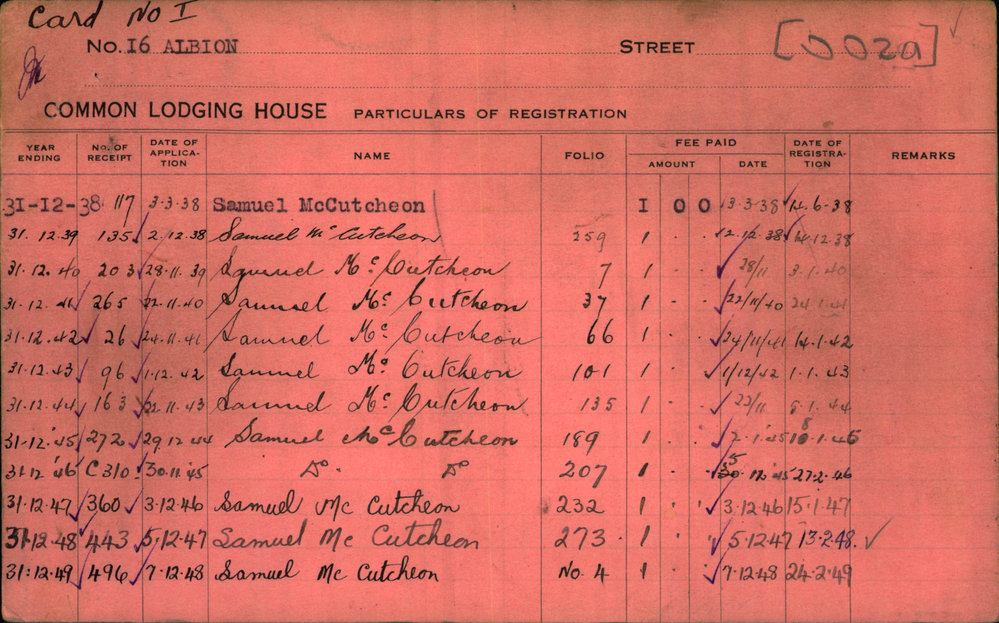 Card No I
No. 16 ALBION STREET [002a]
COMMON LODGING HOUSE PARTICULARS OF REGISTRATION
YEAR ENDING NO. OF RECEIPT DATE OF APPLICA-TION NAME FOLIO FEE PAID AMOUNT DATE DATE OF REGISTRA-TION REMARKS
31-12-38 117 3.3.38 Samuel McCutcheon 1 0 0 3.3.38 14.6.38
31.12.39 135 2.12.38 Samuel Mc Cutcheon 259 1 . . 12.12.38 14.12.38
31.12.40 203 28.11.39 Samuel Mc Cutcheon 7 1 . . 28/11 3.1.40
31.12.41 265 22.11.40 Samuel Mc Cutcheon 37 1 . . 22/11/40 24.1.41
31.12.42 26 24.11.41 Samuel Mc Cutcheon 66 1 . . 24/11/41 14.1.42
31.12.43 96 1.12.42 Samuel Mc Cutcheon 101 1 . . 1/12/42 1.1.43
31.12.44 163 22.11.43 Samuel Mc Cutcheon 135 1 . . 22/11 5.1.44
31.12.45 272 29.12.44 Samuel Mc Cutcheon 189 1 . . 2.1.45 18.1.45
31.12.46 C310 30.11.45 Do. Do. 207 1 . . 5.12.45 27.2.46
31.12.47 360 3.12.46 Samuel Mc Cutcheon 232 1 . . 3.12.46 15.1.47
31.12.48 443 5.12.47 Samuel Mc Cutcheon 273 1 . . 5.12.47 13.2.48.
31.12.49 496 7.12.48 Samuel Mc Cutcheon No. 4 1 . . 7.12.48 24.2.49